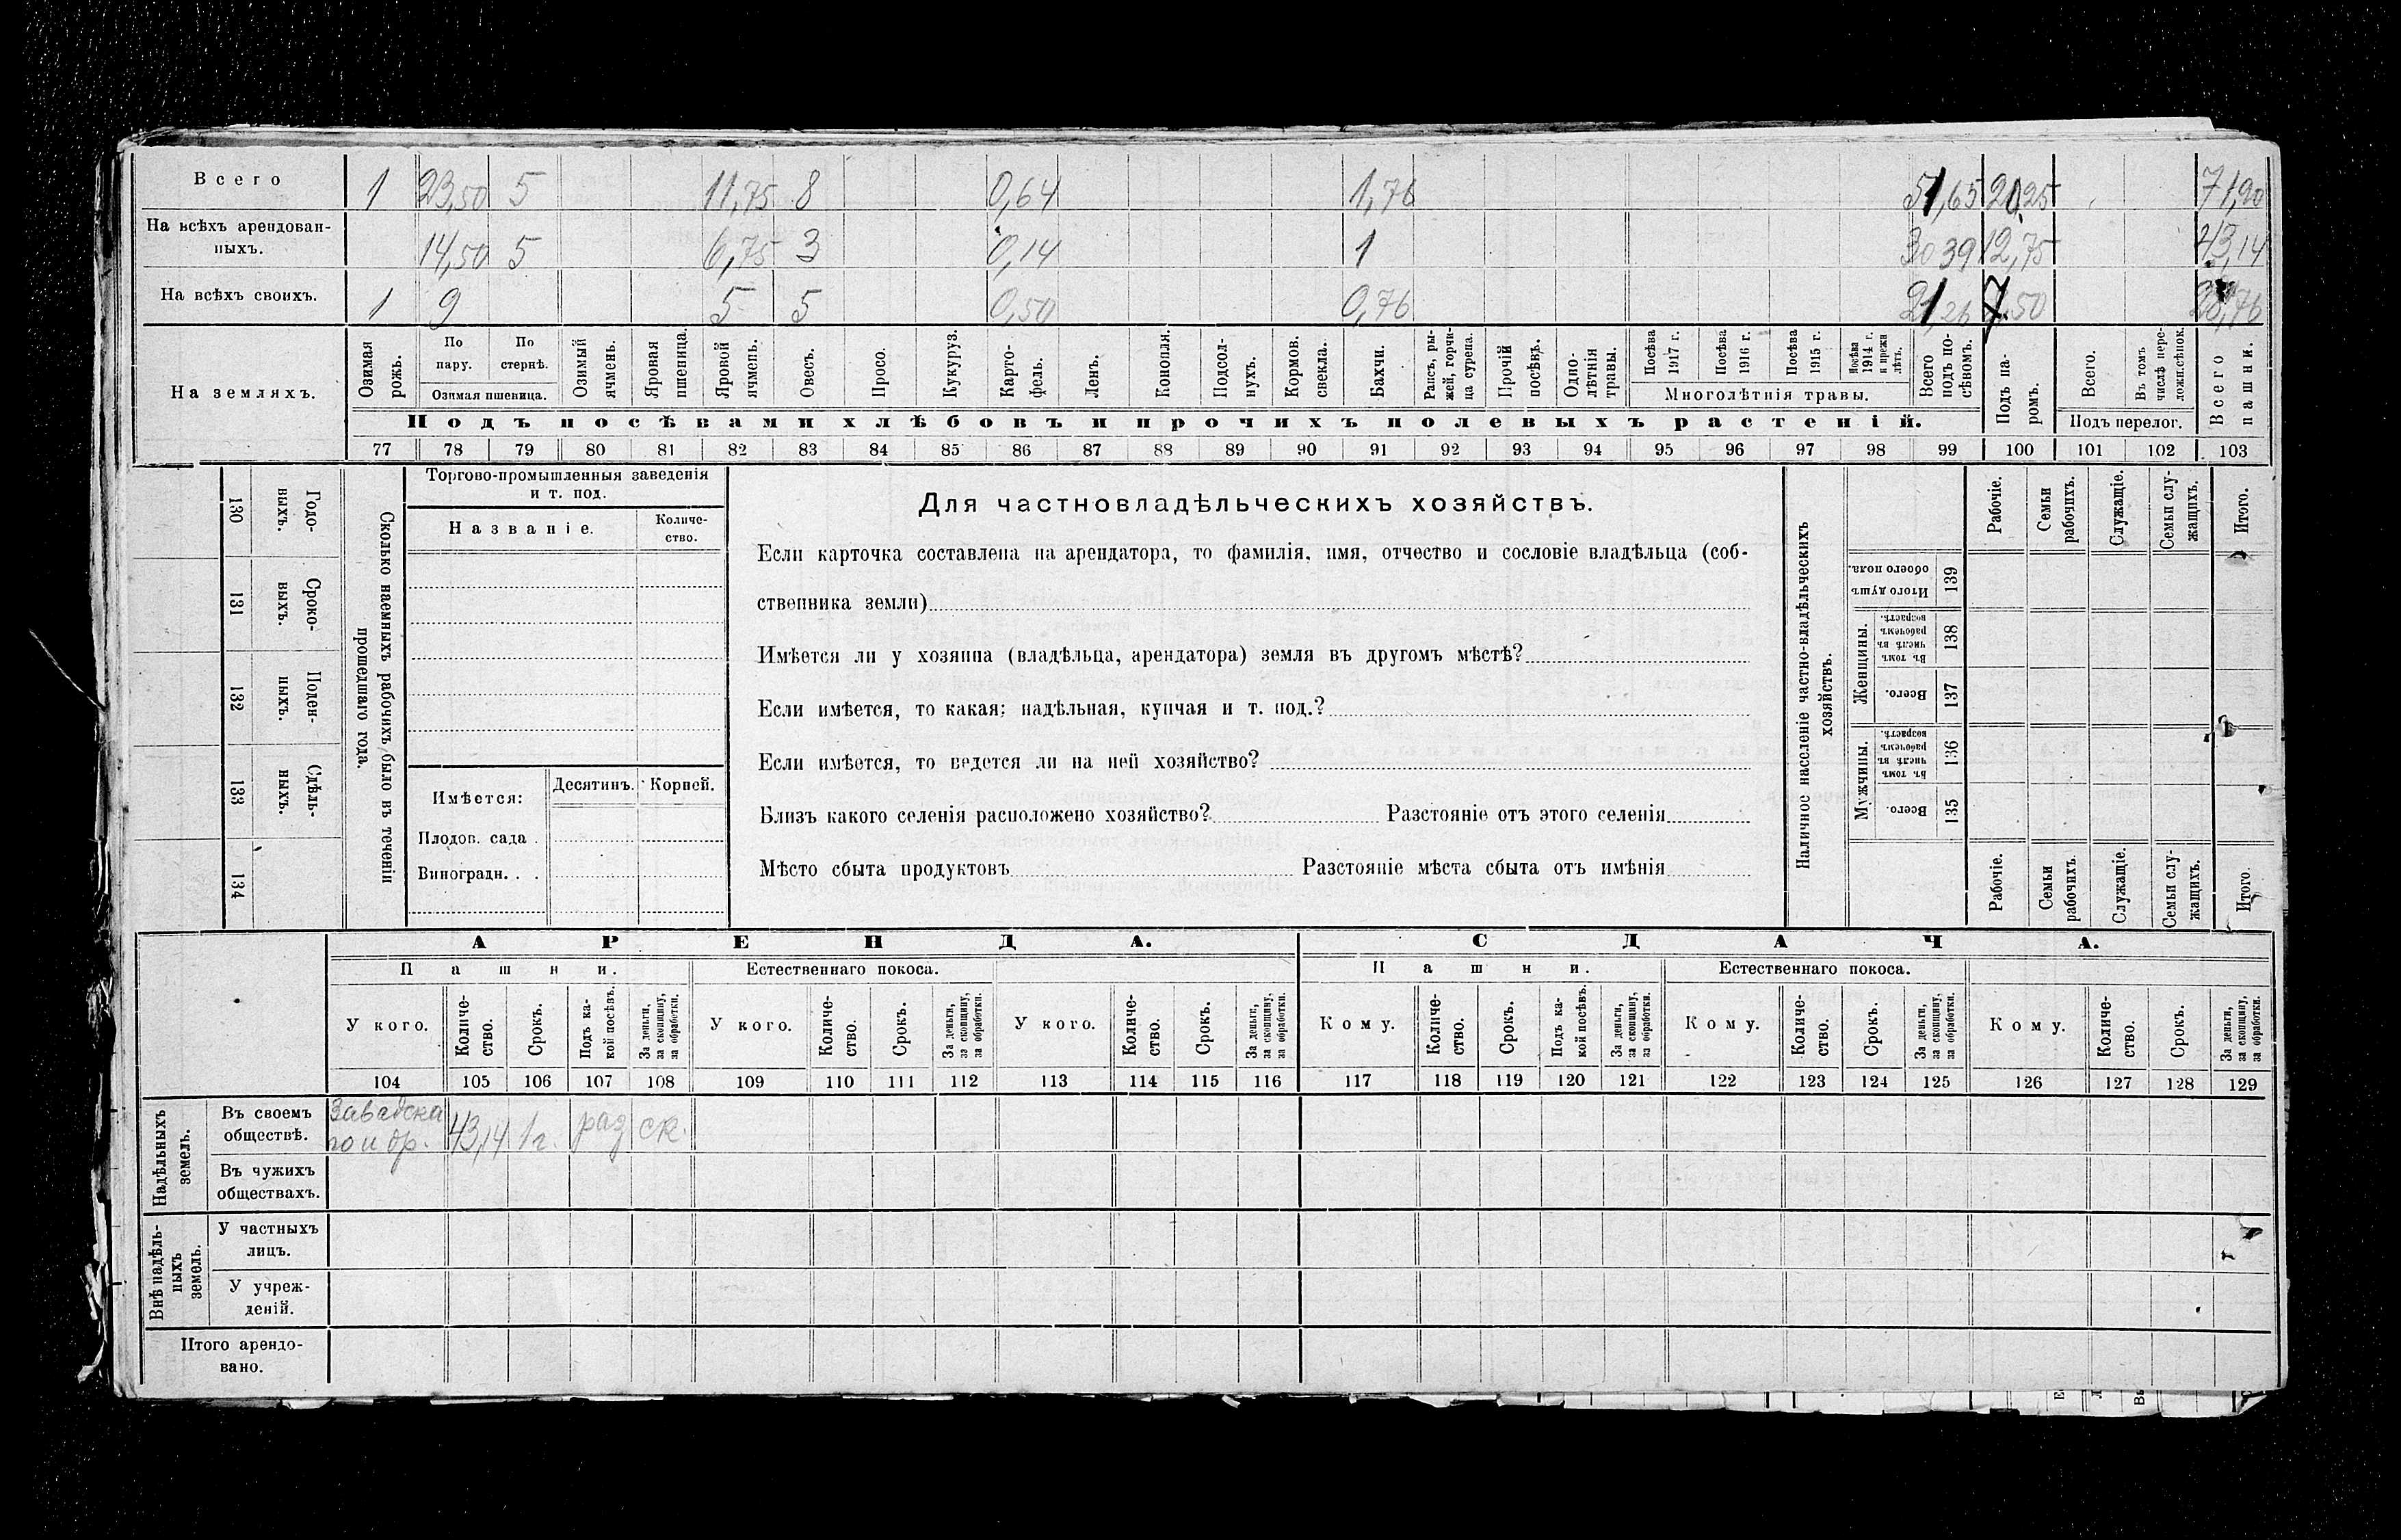 Всего 1 23,50 5 11,75 8 0,64 1,76 51,65 20,25 71,90
На всѣхъ арендован-
ныхъ. 14,50 5 6,75 3 0,14 1 30 39 12,75 43,14
На всѣхъ своихъ. 1 9 5 5 0,50 0,76 21,26 7,50 28,76
На земляхъ.
Озимая
рожь.
По
пару.
По
стернѣ.
Озимая пшеница.
Озимый
ячмень.
Яровая
пшеница.
Яровой
ячмень.
Овесъ.
Просо.
Кукуруз.
Карто-
фель.
Ленъ.
Конопля.
Подсол-
нухъ.
Кормов.
свекла.
Бахчи.
Рапсъ, ры-
жей, горчи-
ца сурепа.
Прочій
посѣвъ.
Одно-
лѣтнія
травы.
Посѣва
1917 г.
Посѣва
1916 г.
Посѣва
1915 г.
Посѣва
1914 г.
и прежн
лѣтъ.
Многолѣтнія травы.
Всего
подъ по-
сѣвомъ.
Подъ па-
ромъ.
Всего.
Въ томъ
числѣ пере-
ложн.сѣнок.
Подъ перелог.
Всего
пашни.
Подъ посѣвами хлѣбовъ и прочихъ полевыхъ растеній.
77 78 79 80 81 82 83 84 85 86 87 88 89 90 91 92 93 94 95 96 97 98 99 100 101 102 103
130
Годо-
выхъ.
131
Сроко-
выхъ.
132
Поден-
ныхъ.
133
Сдѣль-
ныхъ.
134
Сколько наемныхъ рабочихъ было въ теченіи
прошедшаго года.
Торгово-промышленныя заведенія
и т. под.
Названіе.
Количе-
ство.
Имѣется:
Десятинъ.
Корней.
Плодов. сада .
Виноградн. . .
Для частновладѣльческихъ хозяйствъ.
Если карточка составлена на арендатора, то фамилія, имя, отчество и сословіе владѣльца (соб-
ственника земли)
Имѣется ли у хозяина (владѣльца, арендатора) земля въ другомъ мѣстѣ?
Если имѣется, то какая: надѣльная, купчая и т. под.?
Если имѣется, то ведется ли на ней хозяйство?
Близъ какого селенія расположено хозяйство? Разстояніе отъ этого селенія
Мѣсто сбыта продуктовъ Разстояніе мѣста сбыта отъ имѣнія
Наличное населеніе частно-владѣльческихъ
хозяйствъ.
Рабочіе.
Семьи
рабочихъ.
Служащіе.
Семьи слу-
жащихъ.
Итого.
Итого душъ
обоего пола.
139
Женщины.
Въ томъ
числѣ въ
рабочемъ
возрастѣ.
138
Всего.
137
Мужчины.
Въ томъ
числѣ въ
рабочемъ
возрастѣ.
136
Всего.
135
Рабочіе.
Семьи
рабочихъ.
Служащіе.
Семьи слу-
жащихъ.
Итого.
АРЕНДА. СДАЧА.
Пашни. Естественнаго покоса. Пашни. Естественнаго покоса.
У кого.
Количе-
ство.
Срокъ.
Подъ ка-
кой посѣвъ.
За деньги,
за скопщину,
за обработки.
У кого.
Количе-
ство.
Срокъ.
За деньги,
за скопщину,
за обработки.
У кого.
Количе-
ство.
Срокъ.
За деньги,
за скопщину,
за обработки.
Кому.
Количе-
ство.
Срокъ.
Подъ ка-
кой посѣвъ.
За деньги,
за скопщину,
за обработки.
Кому.
Количе-
ство.
Срокъ.
За деньги,
за скопщину,
за обработки.
Кому.
Количе-
ство.
Срокъ.
За деньги,
за скопщину,
за обработки.
104 105 106 107 108 109 110 111 112 113 114 115 116 117 118 119 120 121 122 123 124 125 126 127 128 129
Надѣльныхъ
земель.
Въ своемъ
обществѣ.
Завадска
го и др. 43,14 1 г. раз ск.
Въ чужихъ
обществахъ.
Внѣ надѣль-
ныхъ
земель.
У частныхъ
лицъ.
У учреж-
деній.
Итого арендо-
вано.